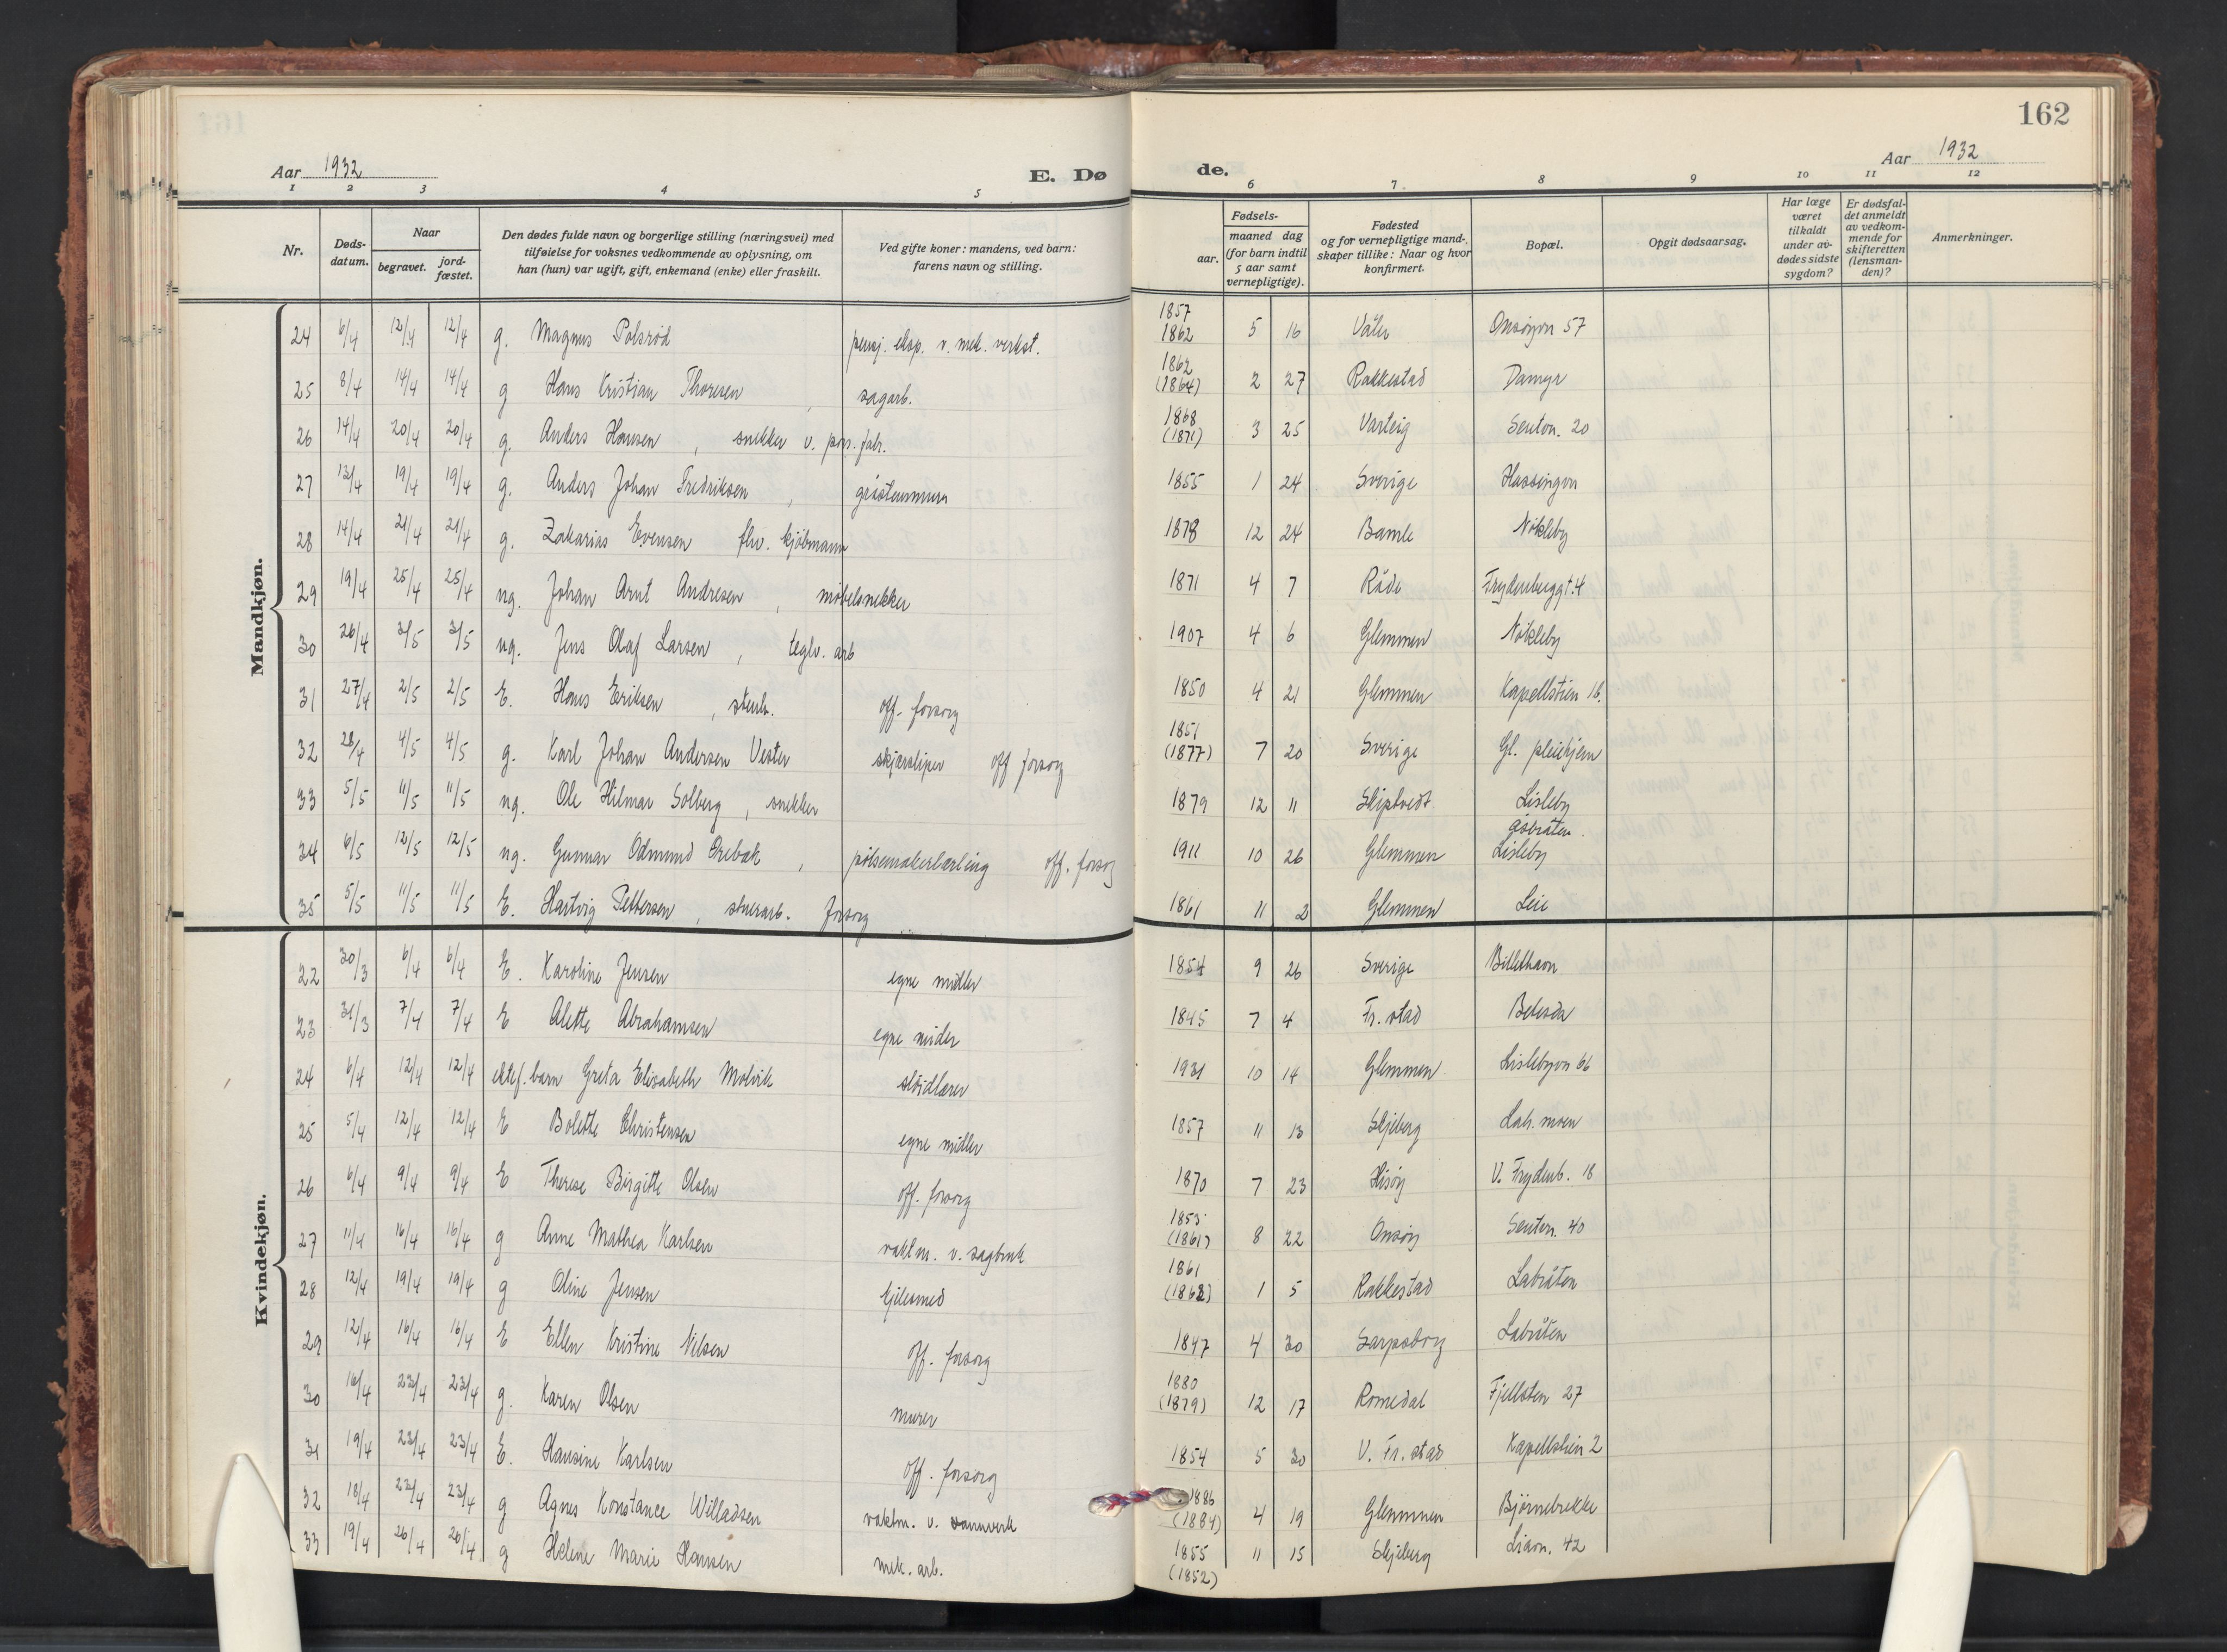 162
Aar 1932 E. Dø de. Aar 1932
1 2 3 4 5 6 7 8 9 10 11 12
Nr. Døds-datum. Naar begravet. jord-fæstet. Den dødes fulde navn og borgerlige stilling (næringsvei) med tilføielse for voksnes vedkommende av oplysning, om han (hun) var ugift, gift, enkemand (enke) eller fraskilt. Ved gifte koner: mandens, ved barn: farens navn og stilling. Fødsels- aar. maaned dag (for barn indtil 5 aar samt vernepligtige). Fødested og for vernepligtige mand-skaper tillike: Naar og hvor konfirmert. Bopæl. Opgit dødsaarsag. Har læge været tilkaldt under av-dødes sidste sygdom? Er dødsfal-det anmeldt av vedkom-mende for skifteretten (lensman-den)? Anmerkninger.
Mandkjøn.
24 6/4 12/4 12/4 g. Magnus Polsrød pensj. eksp. v. mek. verkst. 1857 1862 5 16 Våler Onsøyvn 57
25 8/4 14/4 14/4 g Hans Kristian Thoresen, sagarb. 1862 (1864) 2 27 Rakkestad Damyr
26 14/4 20/4 20/4 g. Anders Hansen, snikker v. pors. fabr. 1868 (1871) 3 25 Varteig Seuton. 20
27 13/4 19/4 19/4 g. Anders Johan Fredriksen, gråstenmurer 1855 1 24 Sverige Hassingvn
28 14/4 21/4 21/4 g. Zakarias Evensen fhv. kjøbmann 1878 12 24 Bamle Nökleby
29 19/4 25/4 25/4 ug. Johan Arnt Andresen, møbelsnekker 1871 4 7 Råde Frydenberggt. 4
30 26/4 3/5 3/5 ug. Jens Olaf Larsen, teglv. arb 1907 4 6 Glemmen Nökleby
31 27/4 2/5 2/5 E. Hans Eriksen, stenh. off. forsorg 1850 4 21 Glemmen Kapellstien 16.
32 28/4 4/5 4/5 g. Karl Johan Andersen Vester skjærsliper off forsorg 1851 (1877) 7 20 Sverige Gl. pleiehjem
33 5/5 11/5 11/5 ug. Ole Hilmar Solberg, snikker 1879 12 11 Skiptvedt Lisleby
34 6/5 12/5 12/5 ug. Gunnar Odmund Orebæk, pølsemakerlærling off. forsorg 1911 10 26 Glemmen Lisleby
35 5/5 11/5 11/5 E. Hartvig Pettersen, stuerarb. forsorg 1861 11 2 Glemmen Leie
Kvindekjøn.
22 30/3 6/4 6/4 E. Karoline Jensen egne midler 1854 9 26 Sverige
23 31/3 7/4 7/4 E Alette Abrahamsen egne midler 1845 7 4 Fr. stad Betesda
24 6/4 12/4 12/4 ektef. barn Greta Elisabeth Molvik sløidlærer 1931 10 14 Glemmen Lislebyvn 66
25 5/4 12/4 12/4 E Bolette Christensen egne midler 1857 11 13 Skjeberg Lab. moen
26 6/4 9/4 9/4 E Therese Birgitte Olsen off. forsorg 1870 7 23 Hisøy V. Frydenb. 18
27 11/4 16/4 16/4 g Anne Mathea Karlsen vaktm. v. sagbruk 1853 (1861) 8 22 Onsøy Seuton. 40
28 12/4 19/4 19/4 g Oline Jensen kjelesmed 1861 (1862) 1 5 Rakkestad Labråten
29 12/4 16/4 16/4 E Ellen Kristine Nilsen off. forsorg 1847 4 30 Sarpsborg Labråten
30 16/4 23/4 23/4 g. Karen Olsen murer 1880 (1879) 12 17 Romedal Fjellsten 27
31 19/4 23/4 23/4 E. Hansine Karlsen off. forsorg 1854 5 30 V. Fr. stad Kapellstien 2
32 18/4 23/4 23/4 g Agnes Konstance Willadsen vaktm. v. vannverk 1886 (1884) 4 19 Glemmen Bjørnebrekke
33 19/4 26/4 26/4 g Helene Marie Hansen mek. arb. 1855 (1852) 11 15 Skjeberg 42